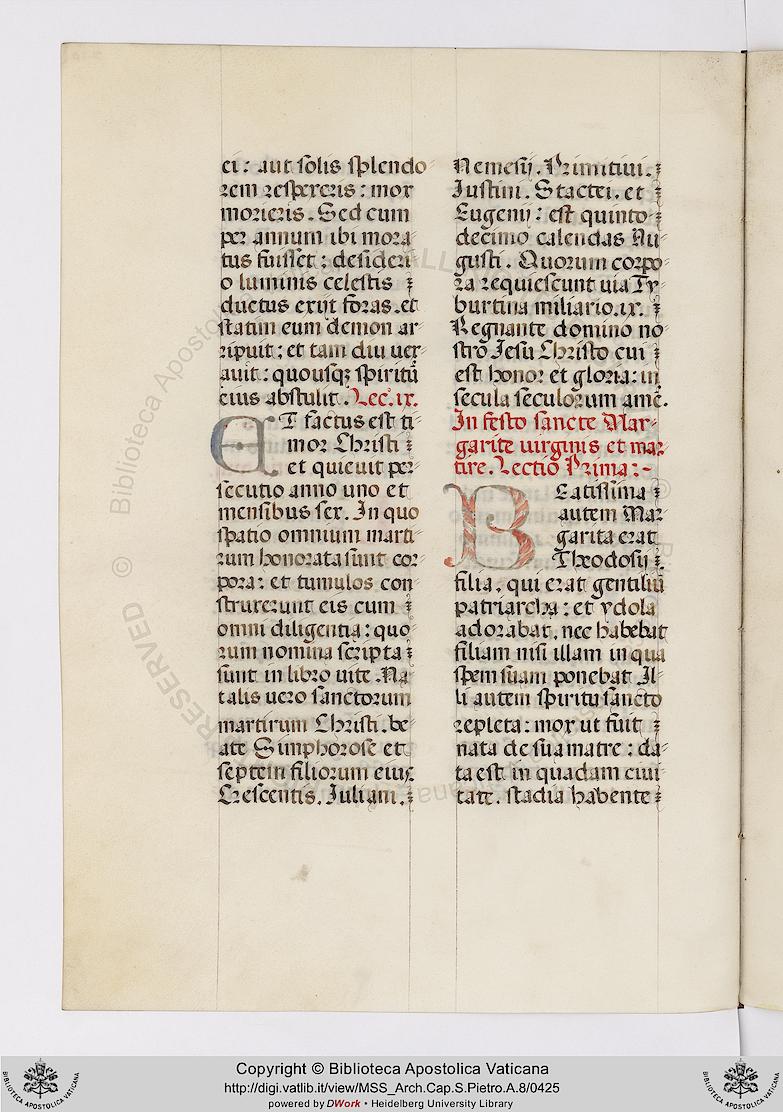 ei: aut solis splendo
rem respexeris: mox
morieris. Sed cum
per annum ibi mora
tus fuisset: desideri
o luminis celestis
ductus exijt foras. et
statim eum demon ar
ripuit: et tam diu uex
auit: quousq; spiritū
eius abstulit. Lec. ix.
ET factus est ti
mor Christi
et quieuit per
secutio anno uno et
mensibus sex. In quo
spatio omnium marti
rum honorata sunt cor
pora: et tumulos con
struxerunt eis cum
omni diligentia: quo
rum nomina scripta
sunt in libro uite. Na
talis uero sanctorum
martirum Christi. be
ate Simphorose et
septem filiorum eius
Crescentis. Iuliani.
Nemesij. Primitiui.
Iustini. Stactei. et
Eugenij: est quinto
decimo calendas Au
gusti. Quorum corpo
ra requiescunt uia Ty
burtina miliario. ix.
Regnante domino no
stro Iesu Christo cui
est honor et gloria: in
secula seculorum amē.
In festo sancte Mar
garite uirginis et mar
tire. Lectio Prima:~
Beatissima
autem Mar
garita erat
Theodosij
filia, qui erat gentiliū
patriarcha: et ydola
adorabat, nec habebat
filiam nisi illam in qua
spem suam ponebat. Il
li autem spiritu sancto
repleta: mox ut fuit
nata de sua matre: da
ta est in quadam ciui
tate. stadia habente
Copyright © Biblioteca Apostolica Vaticana
http://digi.vatlib.it/view/MSS_Arch.Cap.S.Pietro.A.8/0425
powered by DWork • Heidelberg University Library